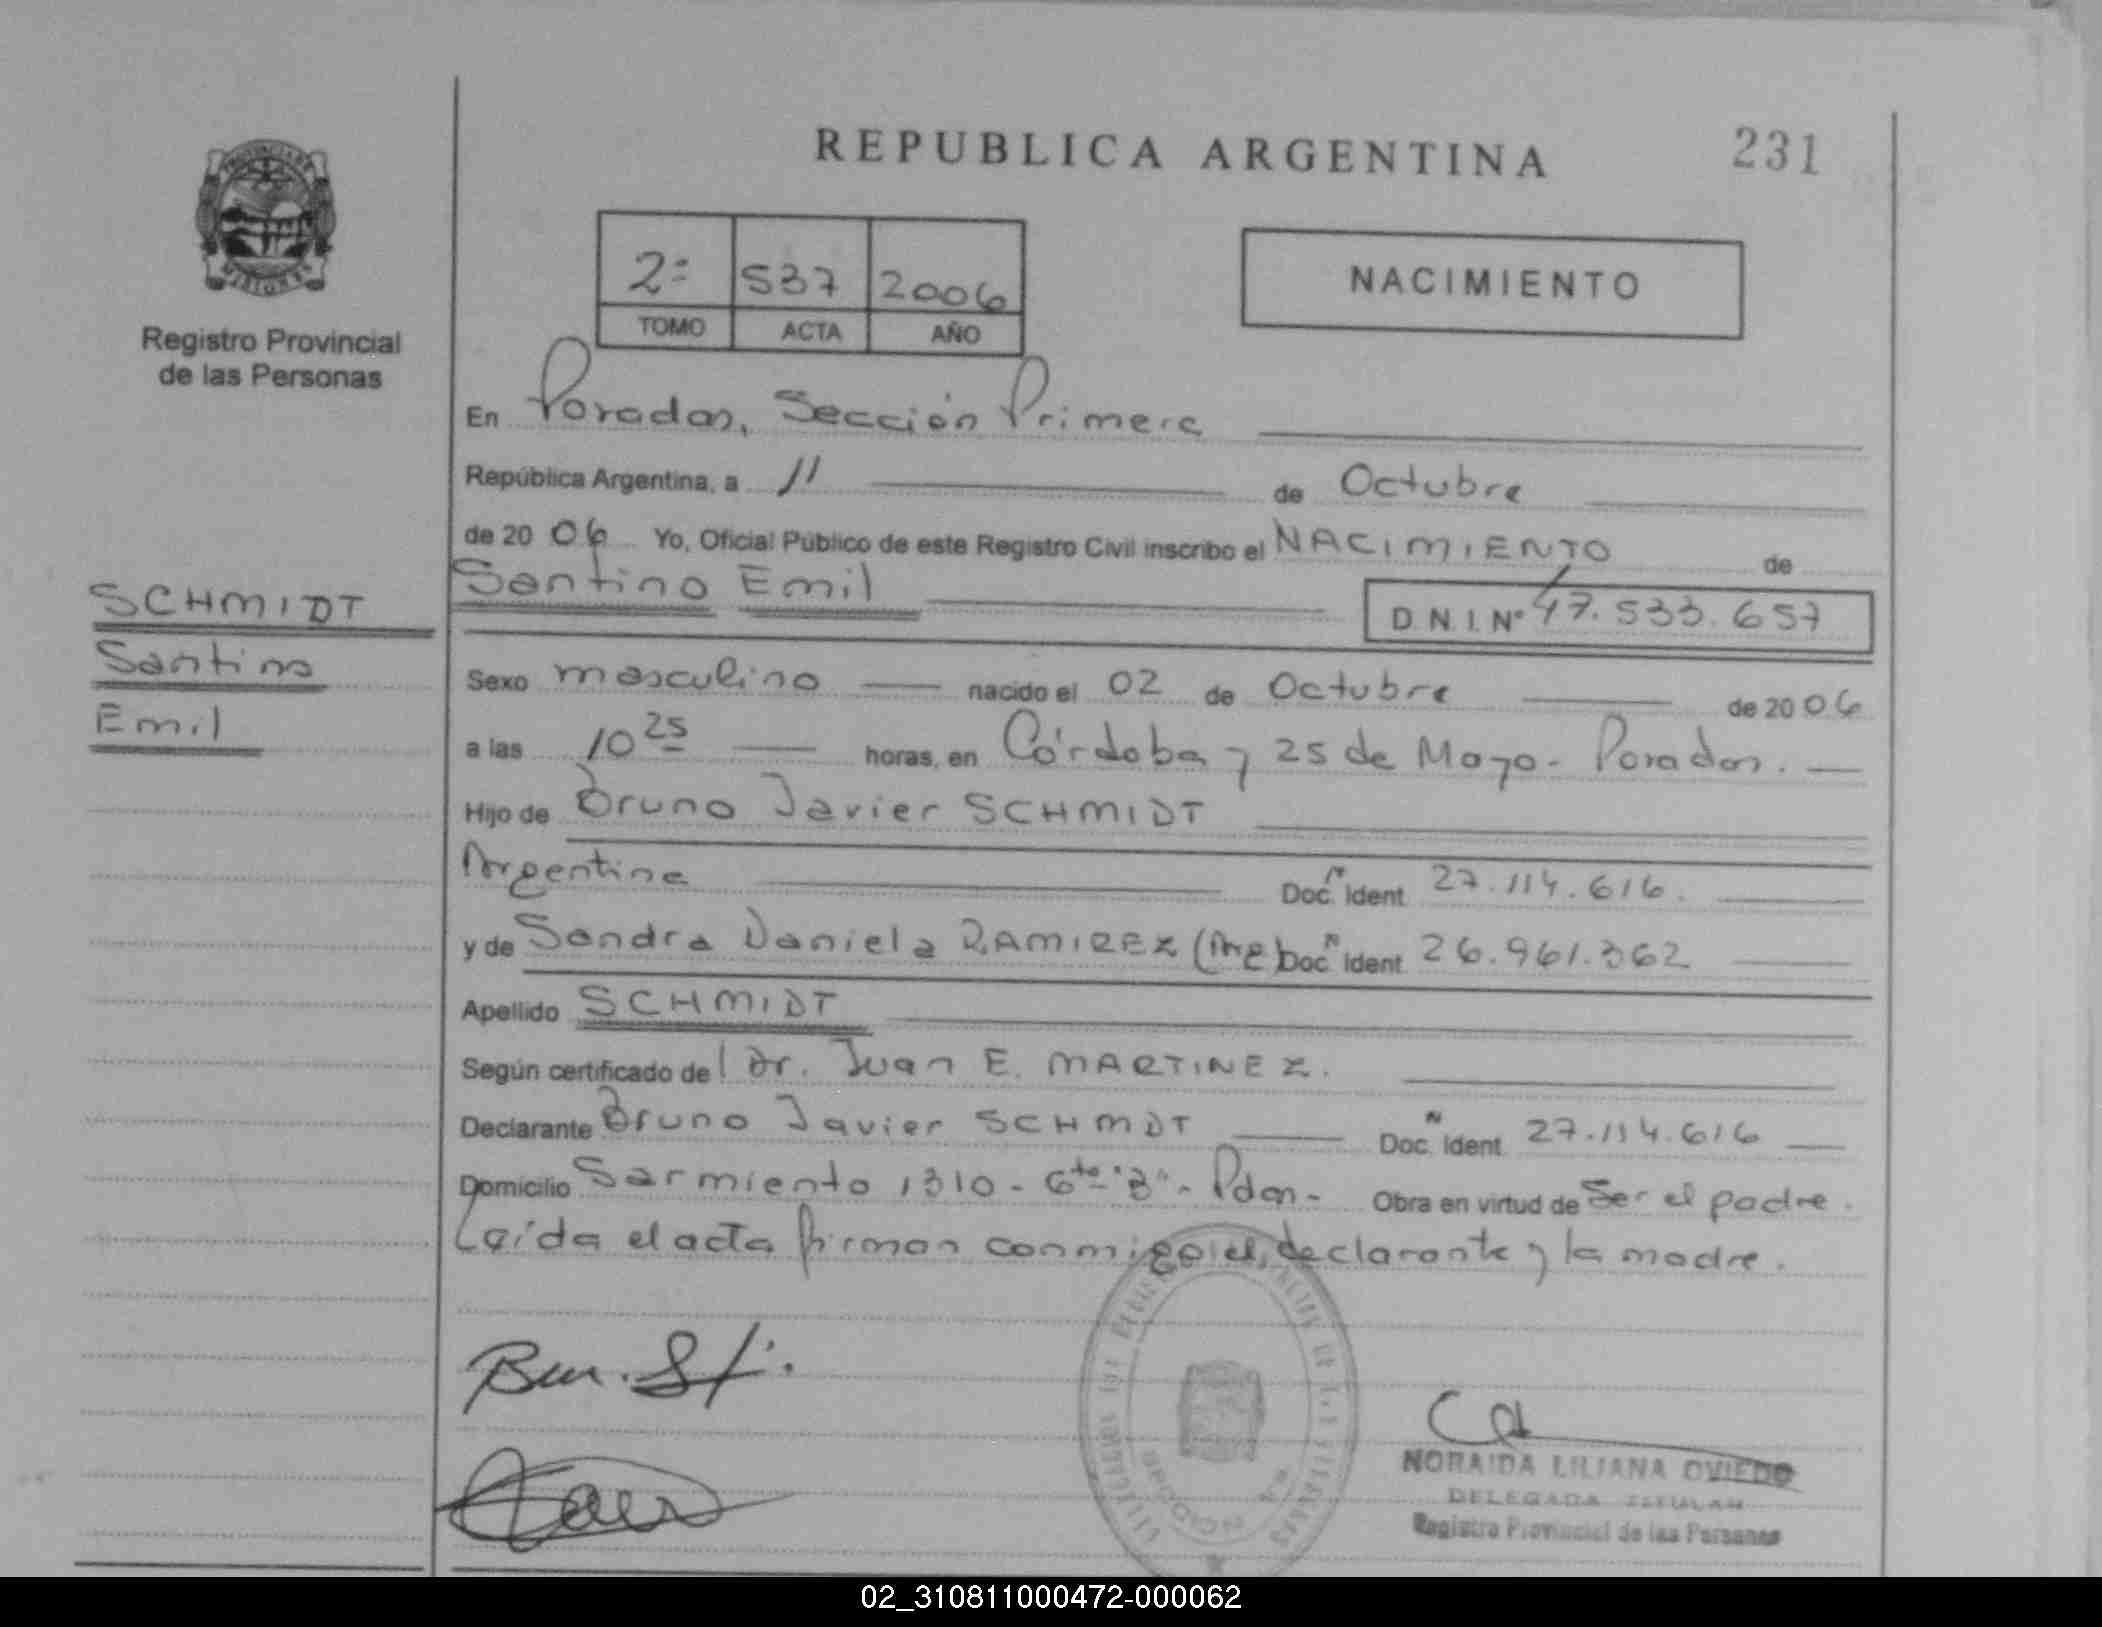 REPUBLICA ARGENTINA
231
PROVINCIA DE
MISIONES
Registro Provincial
de las Personas
2º 537 2006
TOMO ACTA AÑO
NACIMIENTO
En Posadas, Sección Primera
República Argentina, a 11 de Octubre
de 20 06 Yo, Oficial Público de este Registro Civil inscribo el NACIMIENTO de
Santino Emil
D.N.I. Nº 47.533.657
SCHMIDT
Santino
Emil
Sexo masculino nacido el 02 de Octubre de 20 06
a las 10 25 horas, en Córdoba y 25 de Mayo - Posadas.
Hijo de Bruno Javier SCHMIDT
Argentina Doc. Ident 27.114.616.
y de Sandra Daniela RAMIREZ (Arg) Doc. Ident 26.961.362
Apellido SCHMIDT
Según certificado de l Dr. Juan E. MARTINEZ.
Declarante Bruno Javier SCHMDT Doc. Ident. 27.114.616
Domicilio Sarmiento 1310 - 6to "B" - Pdas - Obra en virtud de Ser el padre.
Leída el acta firman conmigo el declarante y la madre.
NORAIDA LILIANA OVIEDO
DELEGADA TITULAR
Registro Provincial de las Personas
SECCION 1ra
02_310811000472-000062